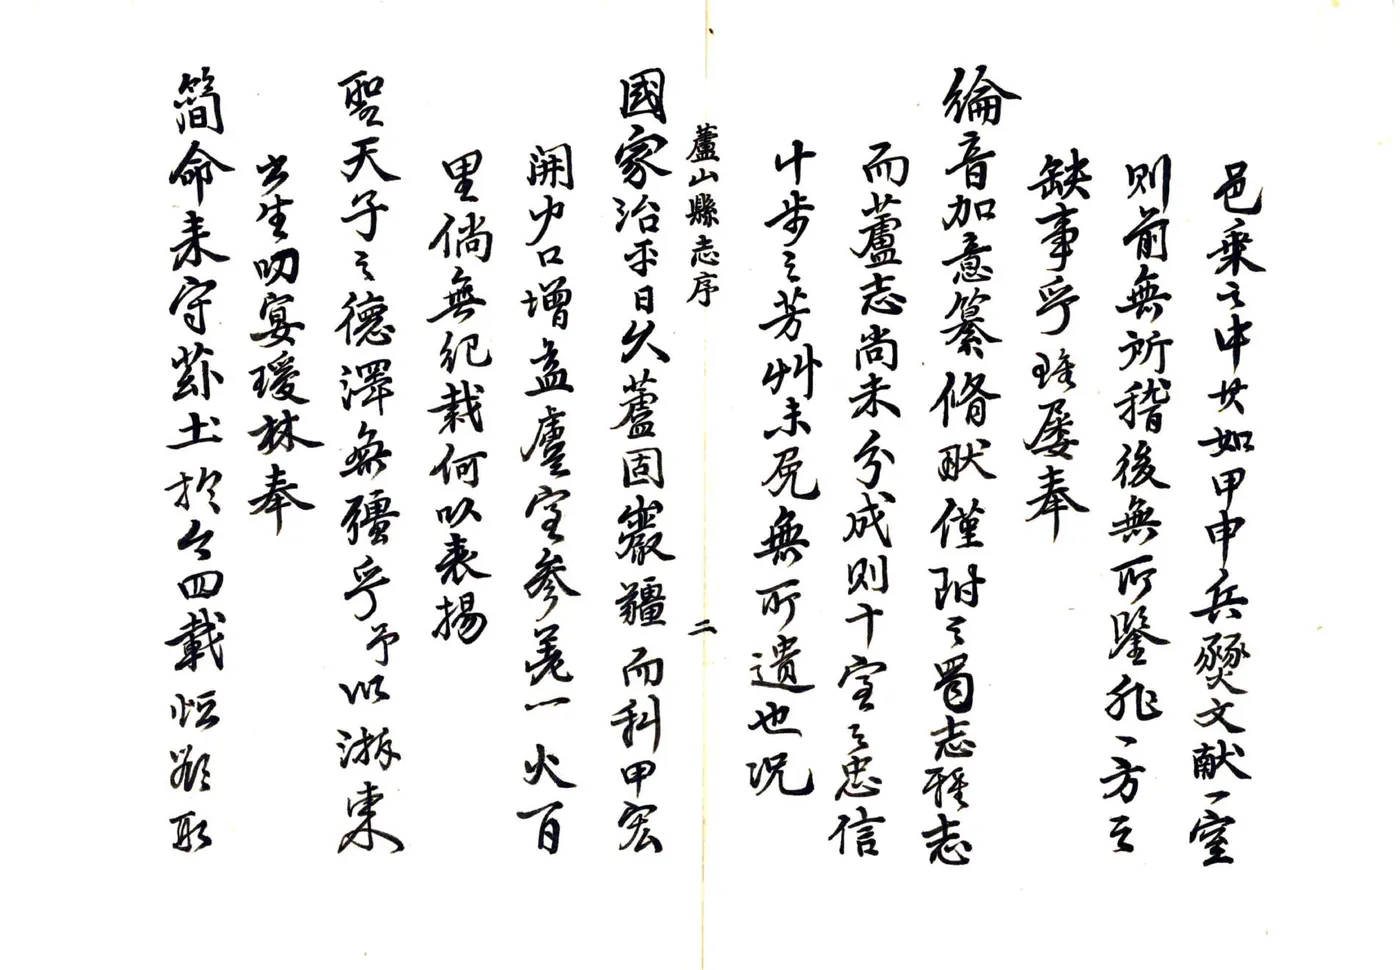 邑乘之中廿如甲申兵燹文献一空
則前無所稽後無所鑒非一方之
缺事乎 屡奉
綸音加意纂脩猷僅附之蜀志雅志
而蘆志尚未分成則十室之忠信
十步之芳艸未免無所遺也况
蘆山縣志序
二
國家治平日久蘆固巖疆而科甲宏
開户口增益廬室參差一火百
里倘無紀載何以表揚
聖天子之德澤無疆乎予以浙東
書生叨宴瓊林奉
簡命来守茲土於今四載恒欲取